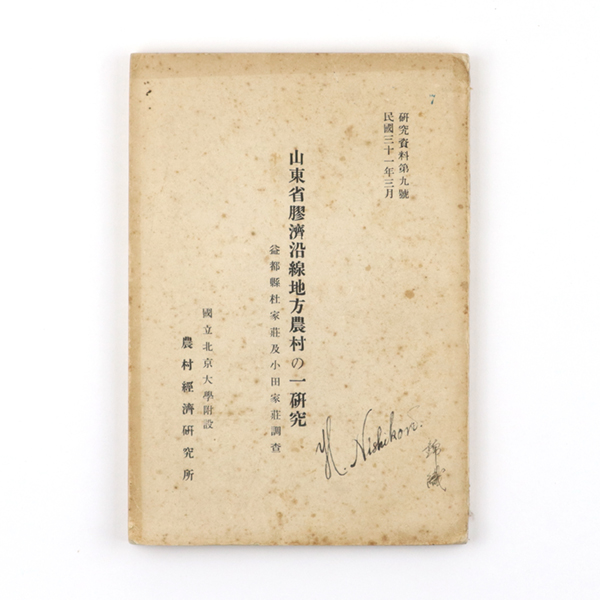 7
研究資料第九號
民國三十一年三月
山東省膠濟沿線地方農村の一研究
益都縣杜家莊及小田家莊調查
國立北京大學附設
農村經濟研究所
H. Nishikori.